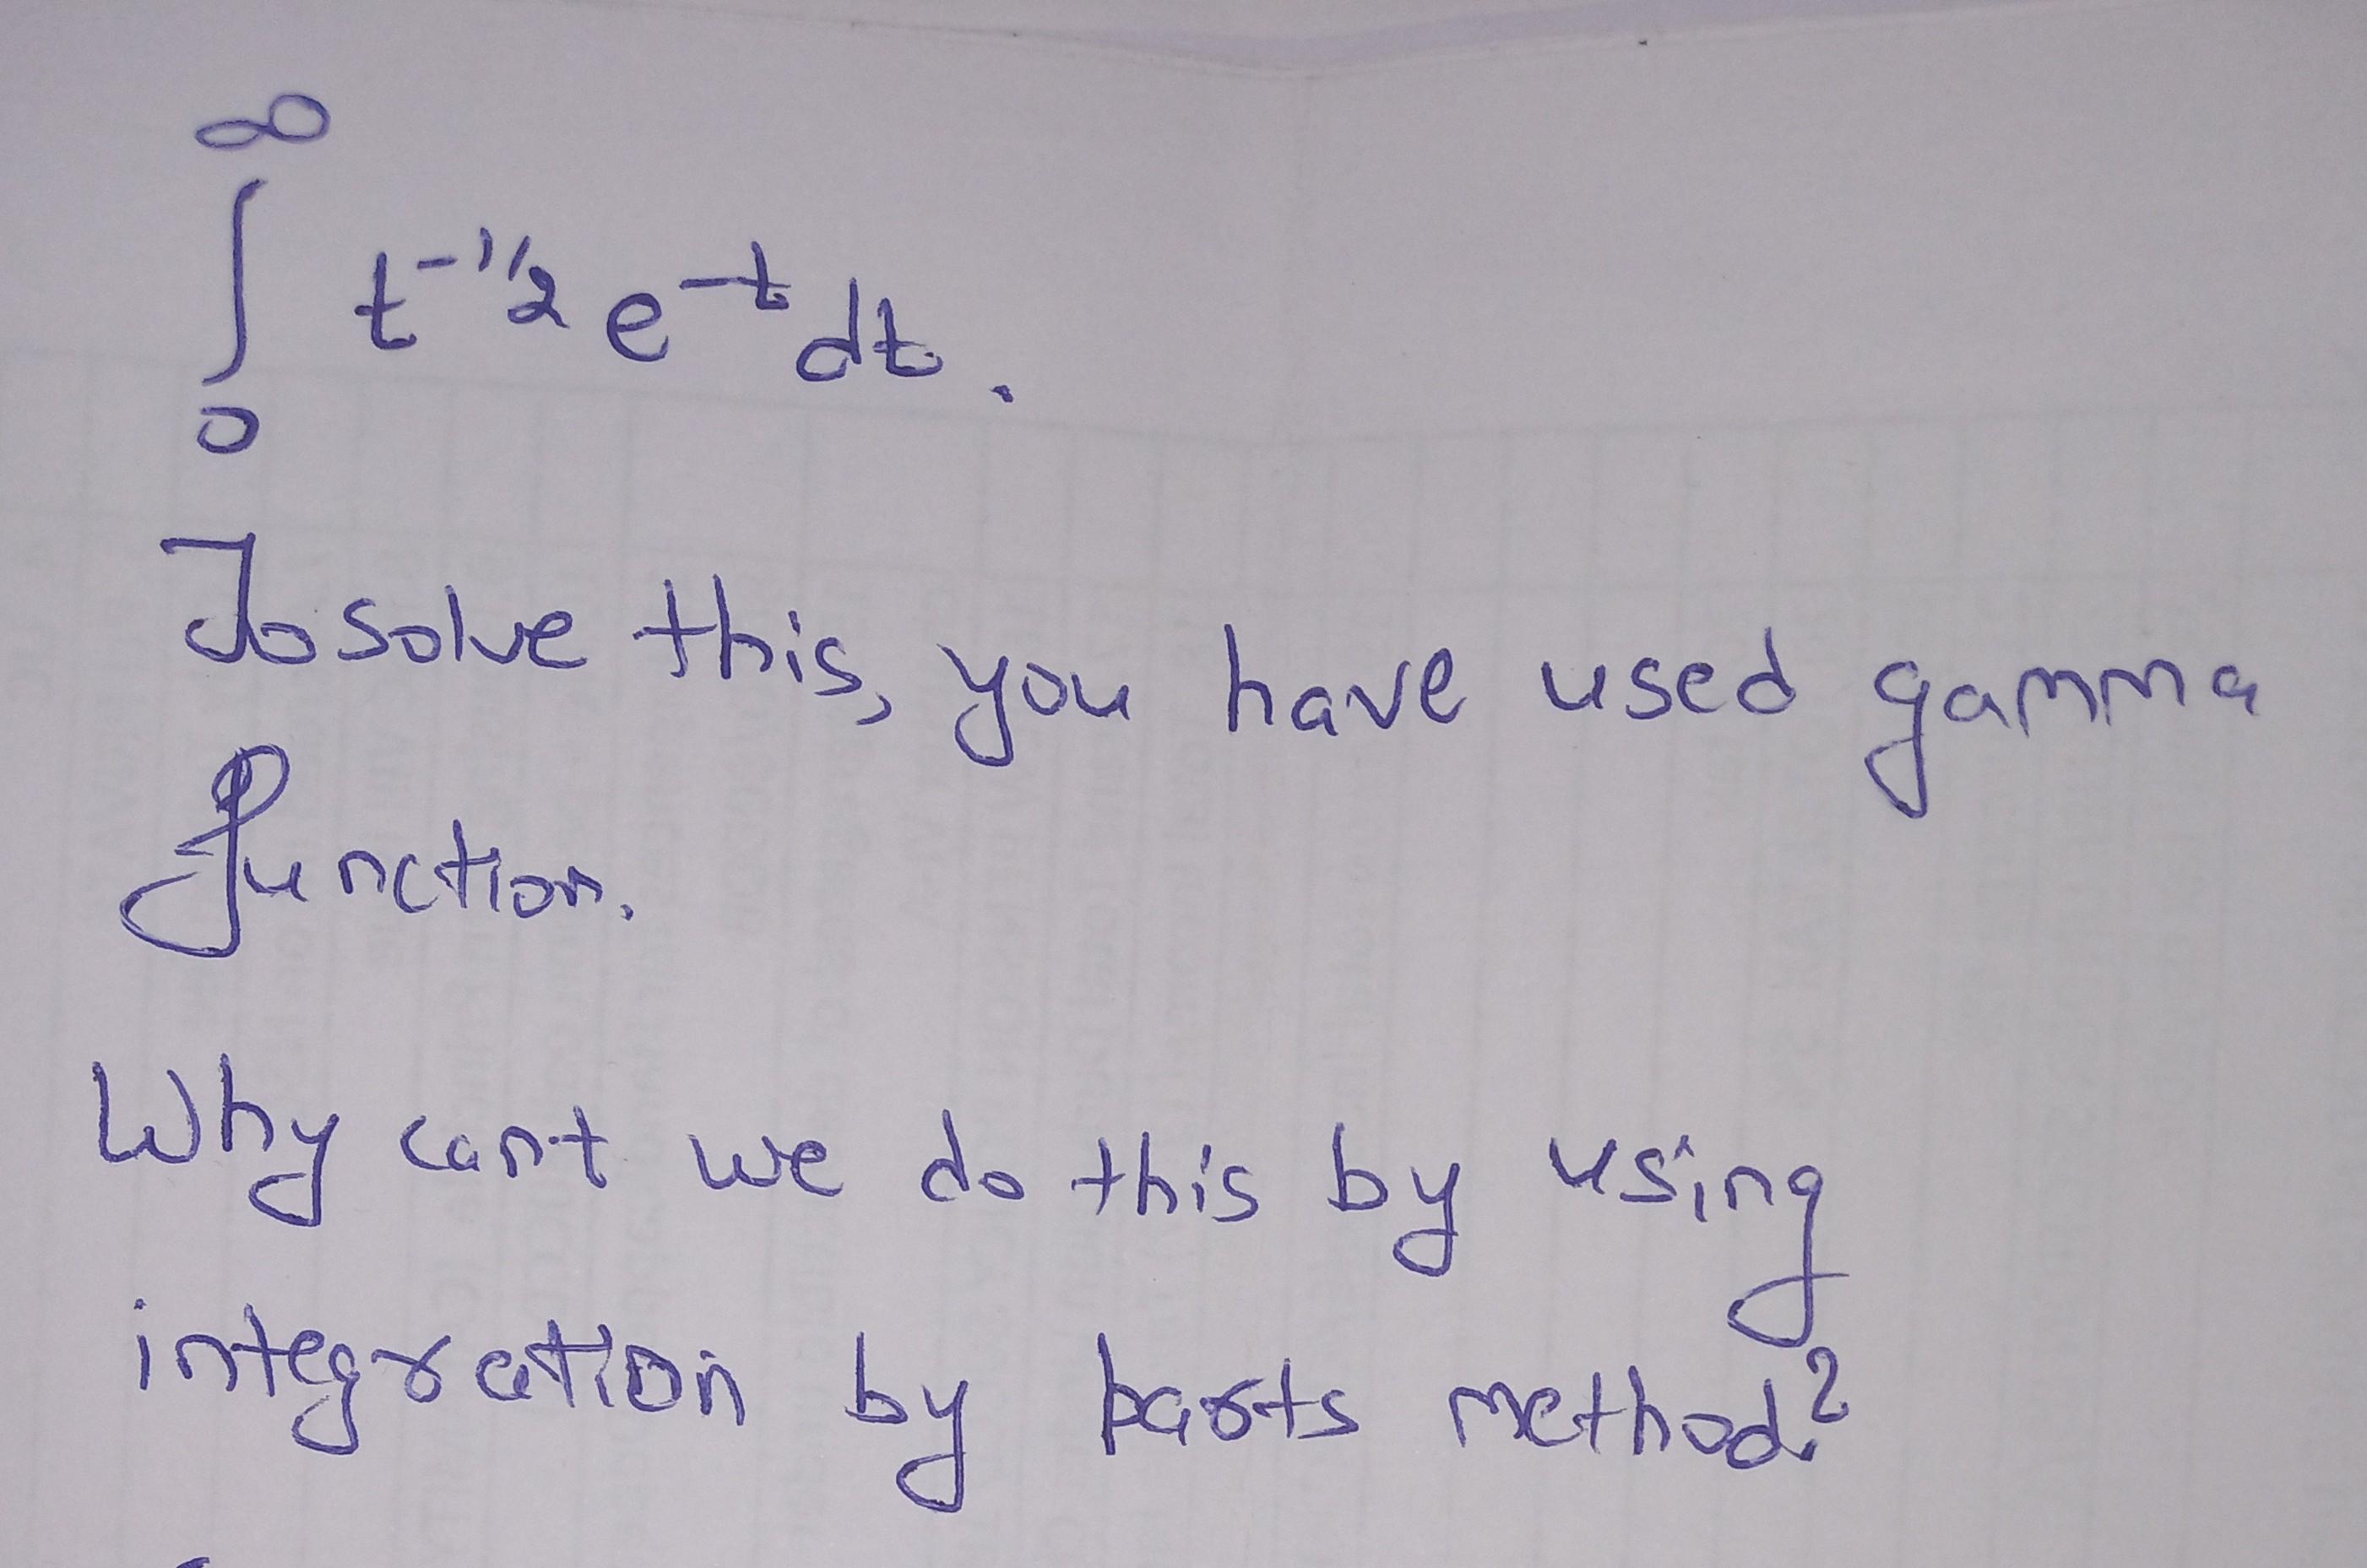 ∞
∫ t^{-1/2} e^{-t} dt.
0
To solve this, you have used gamma
function.
Why can't we do this by using
integration by parts method?